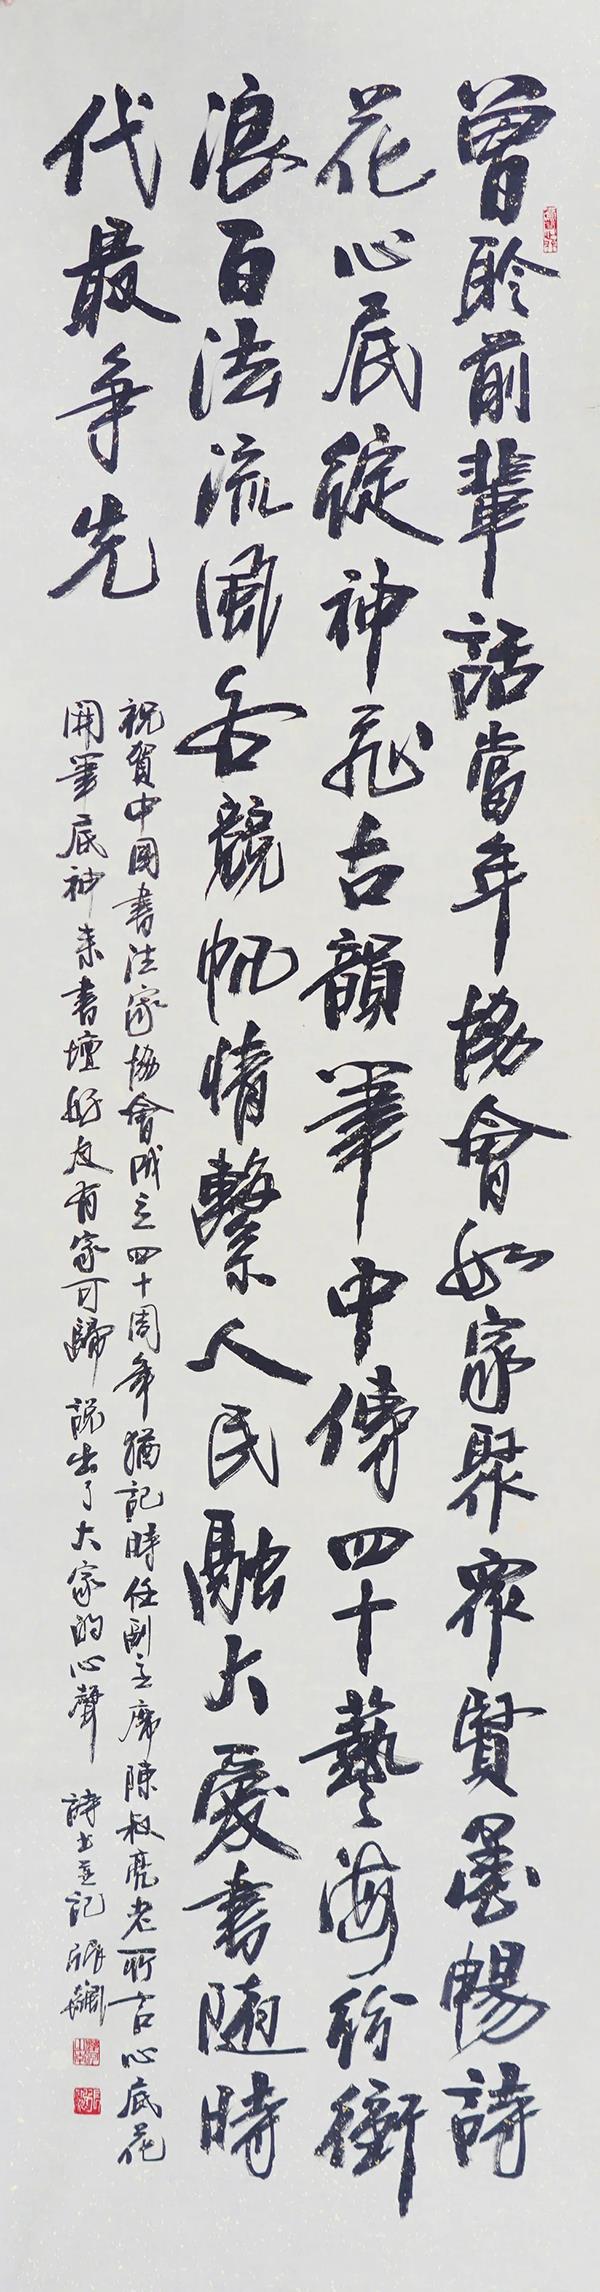 曾聆前輩話當年協會如家聚衆賢墨暢詩
花心底綻神飛古韻筆中傳四十藝海紛銜
浪百法流風各競帆情繫人民融大愛書隨時
代最爭先
祝賀中國書法家協會成立四十周年猶記時任副主席陳叔亮老所言心底花
開筆底神來書壇好友有家可歸說出了大家的心聲 詩书並記